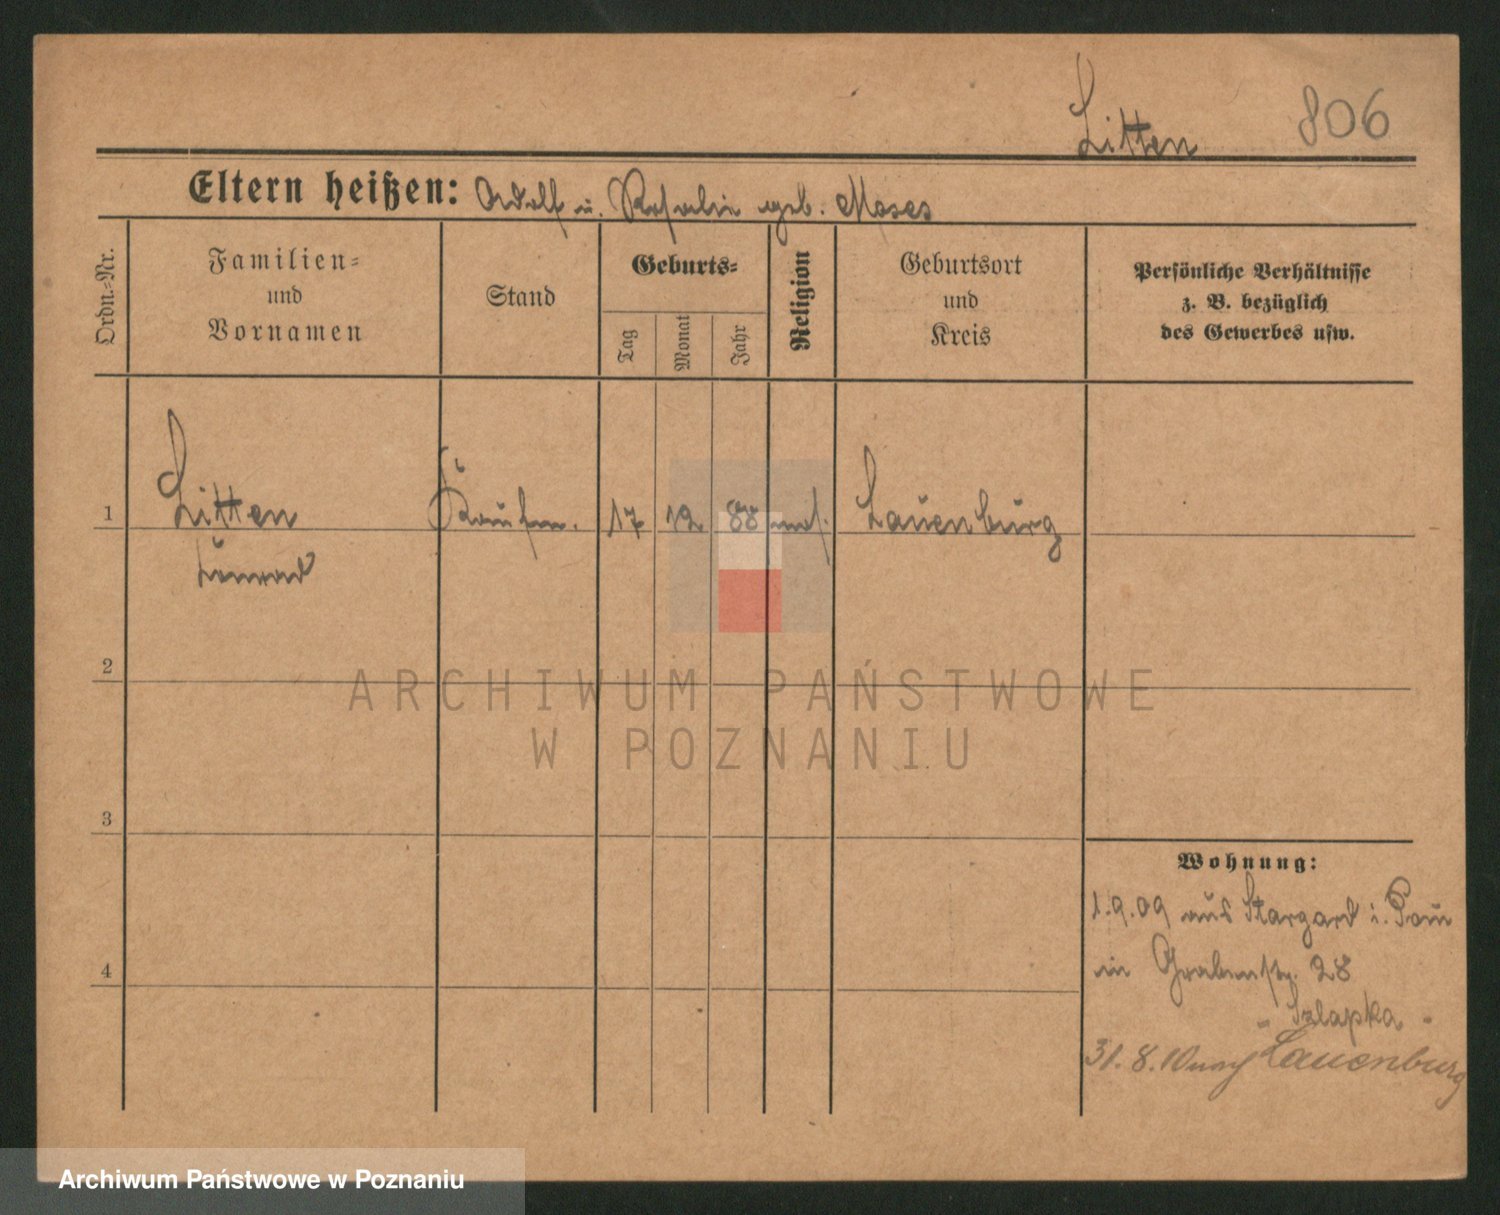 Litten 806
Eltern heißen: Adolf u. Rosalie geb. Moses
Ordn.-Nr.
Familien-
und
Vornamen
Stand
Geburts-
Tag
Monat
Jahr
Religion
Geburtsort
und
Kreis
Persönliche Verhältnisse
z. B. bezüglich
des Gewerbes usw.
1 Litten Kaufm. 17 12 88 mos. Lauenburg
2
3
4
Wohnung:
1.9.09 aus Stargard i. Pom
in Grabenstr. 28
- Szlapka -
31.8.10 nach Lauenburg
ARCHIWUM PAŃSTWOWE
W POZNANIU
Archiwum Państwowe w Poznaniu